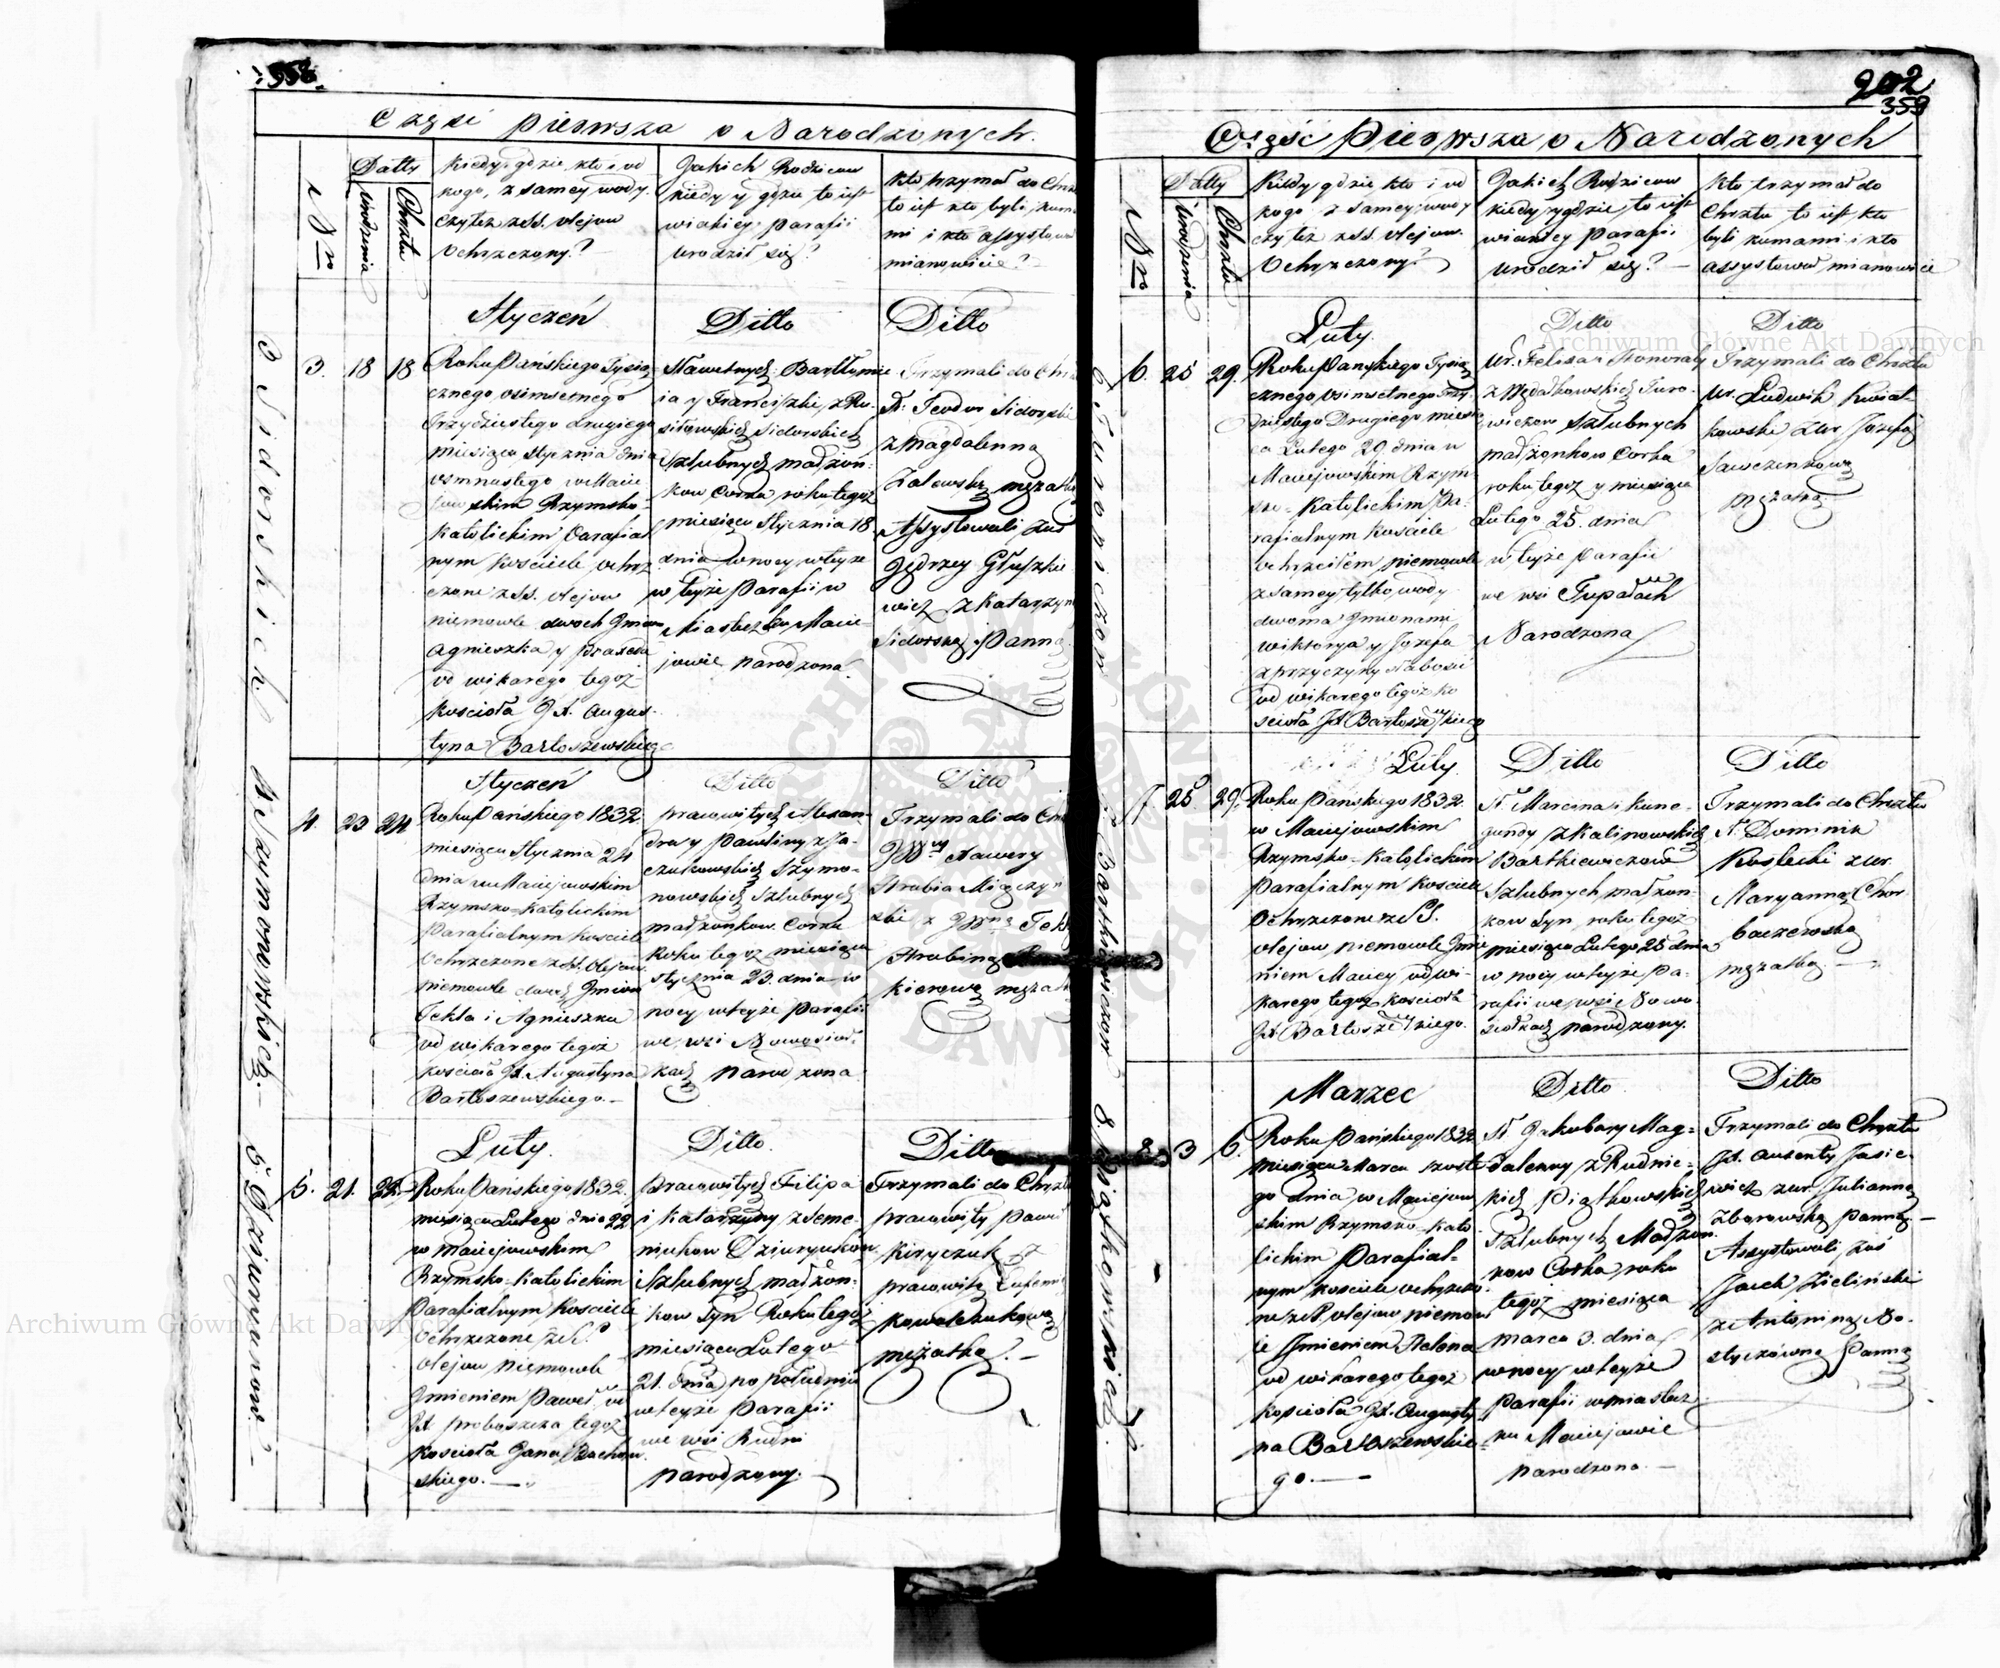 358.
Część pierwsza o Narodzonych.
Nro
Datty
Urodzenia
Chrztu
Kiedy, gdzie, kto i od
kogo, z samey wody,
czy też z SS. olejow
Ochrzczony?
Jakich Rodzicow
kiedy y gdzie to iest
w iakiey parafii
urodził się?
Kto trzymał do Chrz
to iest kto byli kum
mi i kto assystował
mianowicie?
3 Sidorskich
Styczeń
Ditto
Ditto
3. 18 18
Roku Pańskiego Tysią
cznego osimsetnego
trzydziestego drugiego
miesiąca stycznia dnia
osmnastego w Macie
jowskim Rzymsko-
Katolickim Parafial
nym kosciele ochrz
czone z SS. olejow
niemowle dwoch Jmion
Agnieszka y
od wikarego tegoż
kościoła JX. Augus-
tyna Bartoszewskiego
Sławetnych Bartłomie
ia y Franciszki z Ru-
sikowskich Sidorskich
Szlubnych małżon-
kow Corka, roku tegoż
miesiąca Stycznia 18
dnia w nocy w teyże
w teyże Parafii w
Miasteczku Macie-
jowie narodzona.
Trzymali do Chrz
Teodor Sidorski
z Magdalenną
Zalewską mężatką
Assystowali zaś
Jędrzey Głuszkie
wicz z Katarzyn
Sidorską Panną
4 Szymonowskich.
Styczeń
Ditto
Ditto
4. 23 24
Roku Pańskiego 1832
miesiąca Stycznia 24
dnia w Maciejowskim
Rzymsko-Katolickim
Parafialnym kosciele
Ochrzczone z SS. Olejow
niemowle dwoch Jmion
Tekla i Agnieszka
od wikarego tegoż
kościoła JX. Augustyna
Bartoszewskiego.
pracowitych Alexan-
dra y Pawliny z Ja-
czukowskich Szymo-
nowskich Szlubnych
małżonkow Corka
Roku tegoż miesiąca
stycznia 23. dnia w
nocy w teyże parafii
we wsi Nowosioł-
kach narodzona
Trzymali do Chrz
JWny Xawery
Hrabia Miączyń
ski z JWną Tekl
Hrabiną
mężat
5 Dziuryunow.
Luty.
Ditto.
Ditto
5. 21. 22.
Roku Pańskiego 1832.
miesiąca Lutego dnia 22
w Maciejowskim
Rzymsko-Katolickim
Parafialnym kosciele
Ochrzczone z SS.
olejow niemowle
Jmieniem Paweł od
JX proboszcza tegoż
kościoła Jana
skiego.
Pracowitych Filipa
i Katarzyny z Seme-
niukow Dziuryukow
Szlubnych małżon-
kow Syn Roku tegoż
miesiąca Lutego
21. dnia po południu
w teyże Parafii
we wsi Rudni
narodzony.
Trzymali do Chrztu
pracowity Paweł
Kiryczuk z
pracowitą Eufemią
Kowalczukową
mężatką.
202
359
Część Pierwsza o Narodzonych
Nro
Datty
Urodzenia
Chrztu
Kiedy, gdzie kto i od
kogo z samey, wody
czy też z SS. olejow.
Ochrzczony?
Jakich Rodzicow
kiedy y gdzie, to iest
w iakiey parafii
urodził się?
Kto trzymał do
Chrztu to iest, kto
byli kumami i kto
assystował mianowicie
6 Turowiczow
Luty.
Ditto
Ditto
6. 25 29.
Roku Pańskiego Tysią
cznego osimsetnego Trzy-
dziestego Drugiego miesią
ca Lutego 29 dnia w
Maciejowskim Rzym-
sko-Katolickim Pa-
rafialnym kosciele
ochrzciłem niemowle
z samey tylko wody
dwoma Jmionami
Wiktorya y Jozefa
z przyczyny słabosci
od wikarego tegoż ko
ścioła JX Bartoszewskiego
Ur. Felixa Honoraty
Turo-
wiczow Szlubnych
małżonkow Corka
roku tegoż y miesiąca
Lutego 25. dnia
w teyże parafii
we wsi Tupałach
Narodzona
Trzymali do Chrztu
Ur. Ludwik Kwiat-
kowski z Ur. Jozefą
Sawczenkową
mężatką.
7 Bartkiewiczow
Luty
Ditto
Ditto
7. 25 29.
Roku Pańskiego 1832.
w Maciejowskim
Rzymsko-Katolickim
Parafialnym kosciele
Ochrzczone z SS.
olejow niemowle Jmie
niem Maciey od wi-
karego tegoż kościoła
JX Bartoszewskiego.
Marcina i Kune-
gundy z Kalinowskich
Bartkiewiczow
Szlubnych małżon-
kow Syn, roku tegoż
miesiąca Lutego 25 dnia
w nocy w teyże Pa-
rafii we wsi Nowo-
siołkach narodzony.
Trzymali do Chrztu
Dominik
Kostecki z Ur.
Maryanną Chor-
baczewską
mężatką.
8. Piątkowskich
Marzec
Ditto
Ditto
8. 3 6.
Roku Pańskiego 1832
miesiąca Marca szoste
go dnia w Maciejow
skim Rzymsko-Kato
lickim Parafial-
nym kosciele ochrzczo-
ne z SS. olejow niemow
le Jmieniem Helena
od wikarego tegoż
kościoła JX. Augusty
na Bartoszewskie-
go.
Jakuba y Mag-
daleny z Rudnic-
kich Piątkowskich
Szlubnych Małżon-
kow Corka, roku
tegoż miesiąca
marca 3. dnia
w nocy w teyże
Parafii w miastecz
ku Maciejowie
narodzona.
Trzymali do Chrztu
Jasie-
wicz z Ur. Julianną
Zborowską panną.
Assystowali zaś
Jacek Zieliński
z Antoniną No-
styczówną Panną
Archiwum Główne Akt Dawnych
Archiwum Główne Akt Dawnych